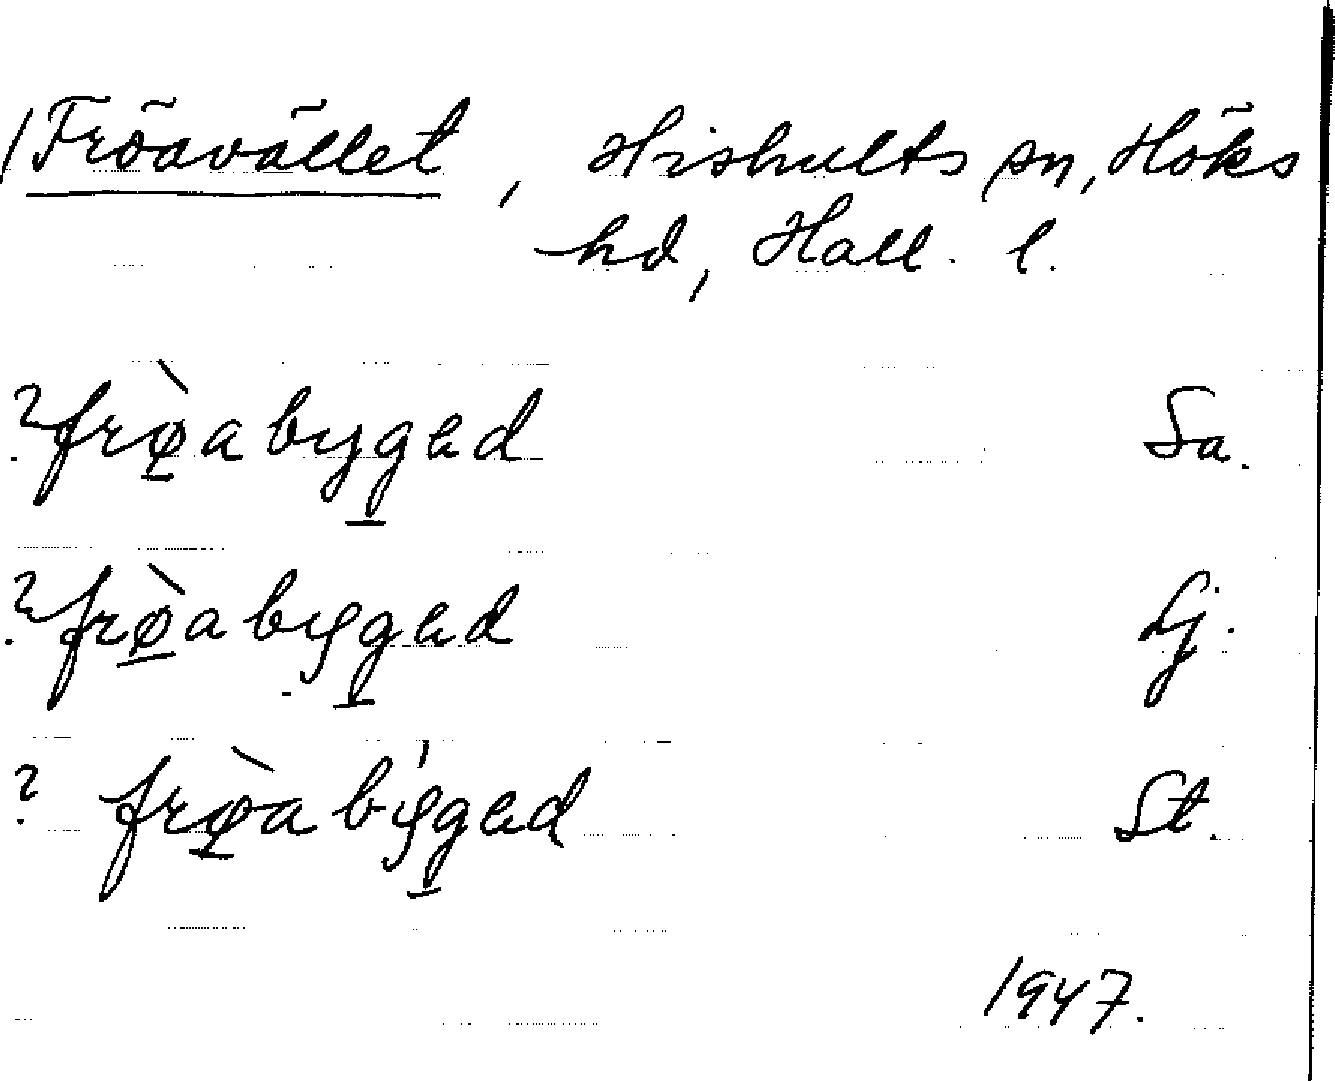 /Fröavället, Hishults sn, Höks
hd, Hall. l.
? frø̱̀abyg̱ad Sa.
? frø̱̀abyg̱ad Lj.
? frø̱̀abýg̱ad St.
1947.